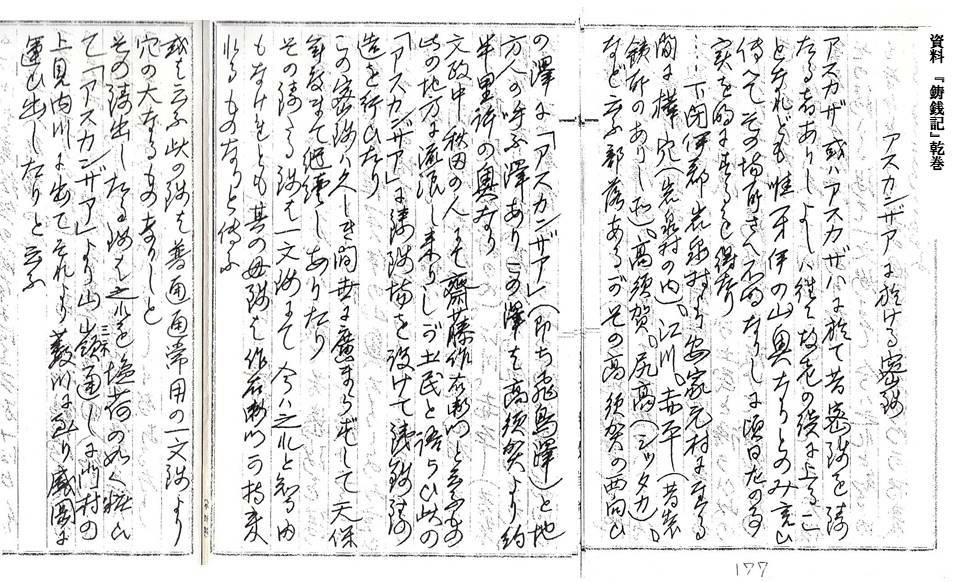 資料 『鋳銭記』乾巻
アスカンザアに於ける密鋳
アスカザ 或ハアスカザハに於て昔密銭を鋳
たる者ありしよしハ往々故老の談に上るこ
となれども惟 の山奥なりとのみ言ひ
傳へてその場所さへ不明なりしに頃日
実を的にするを得たり
下閉伊郡岩泉村より安家元村に至る
間に樺穴(岩泉村の内)、江川、赤平(昔
鉄所のありし所)、高須賀、尻高(シッタカ)、
など云ふ部落あるがその高須賀の西向ひ
の澤に「アスカンザア」(即ち飛鳥澤)と地
方人の呼ふ澤ありこの澤を高須賀より約
半里許の奥なり
文政中秋田の人にて齋藤作右衛門と云ふもの
此の地方に流浪し来りしが土民と語らひ此の
「アスカンザア」に鋳銭場を設けて鋳
造を行ひたり
この密鋳ハ久しき間世に廣まらずして天保
年度まで継続しありたり
その鋳たる銭も一文銭にて今ハ之れと知る由
もなけれども其の母銭も作右衛門の持来
れるものなりと傳ふ
或は云ふ此の銭は普通通常用の一文銭より
穴の大なるものなりしと
その鋳出したる銭は之れを塩荷の如く粧ひ
て「アスカンザア」より山嶺通しに門村の
上見内川に出てそれより薮川に至り盛岡に
運ひ出したりと云ふ
177